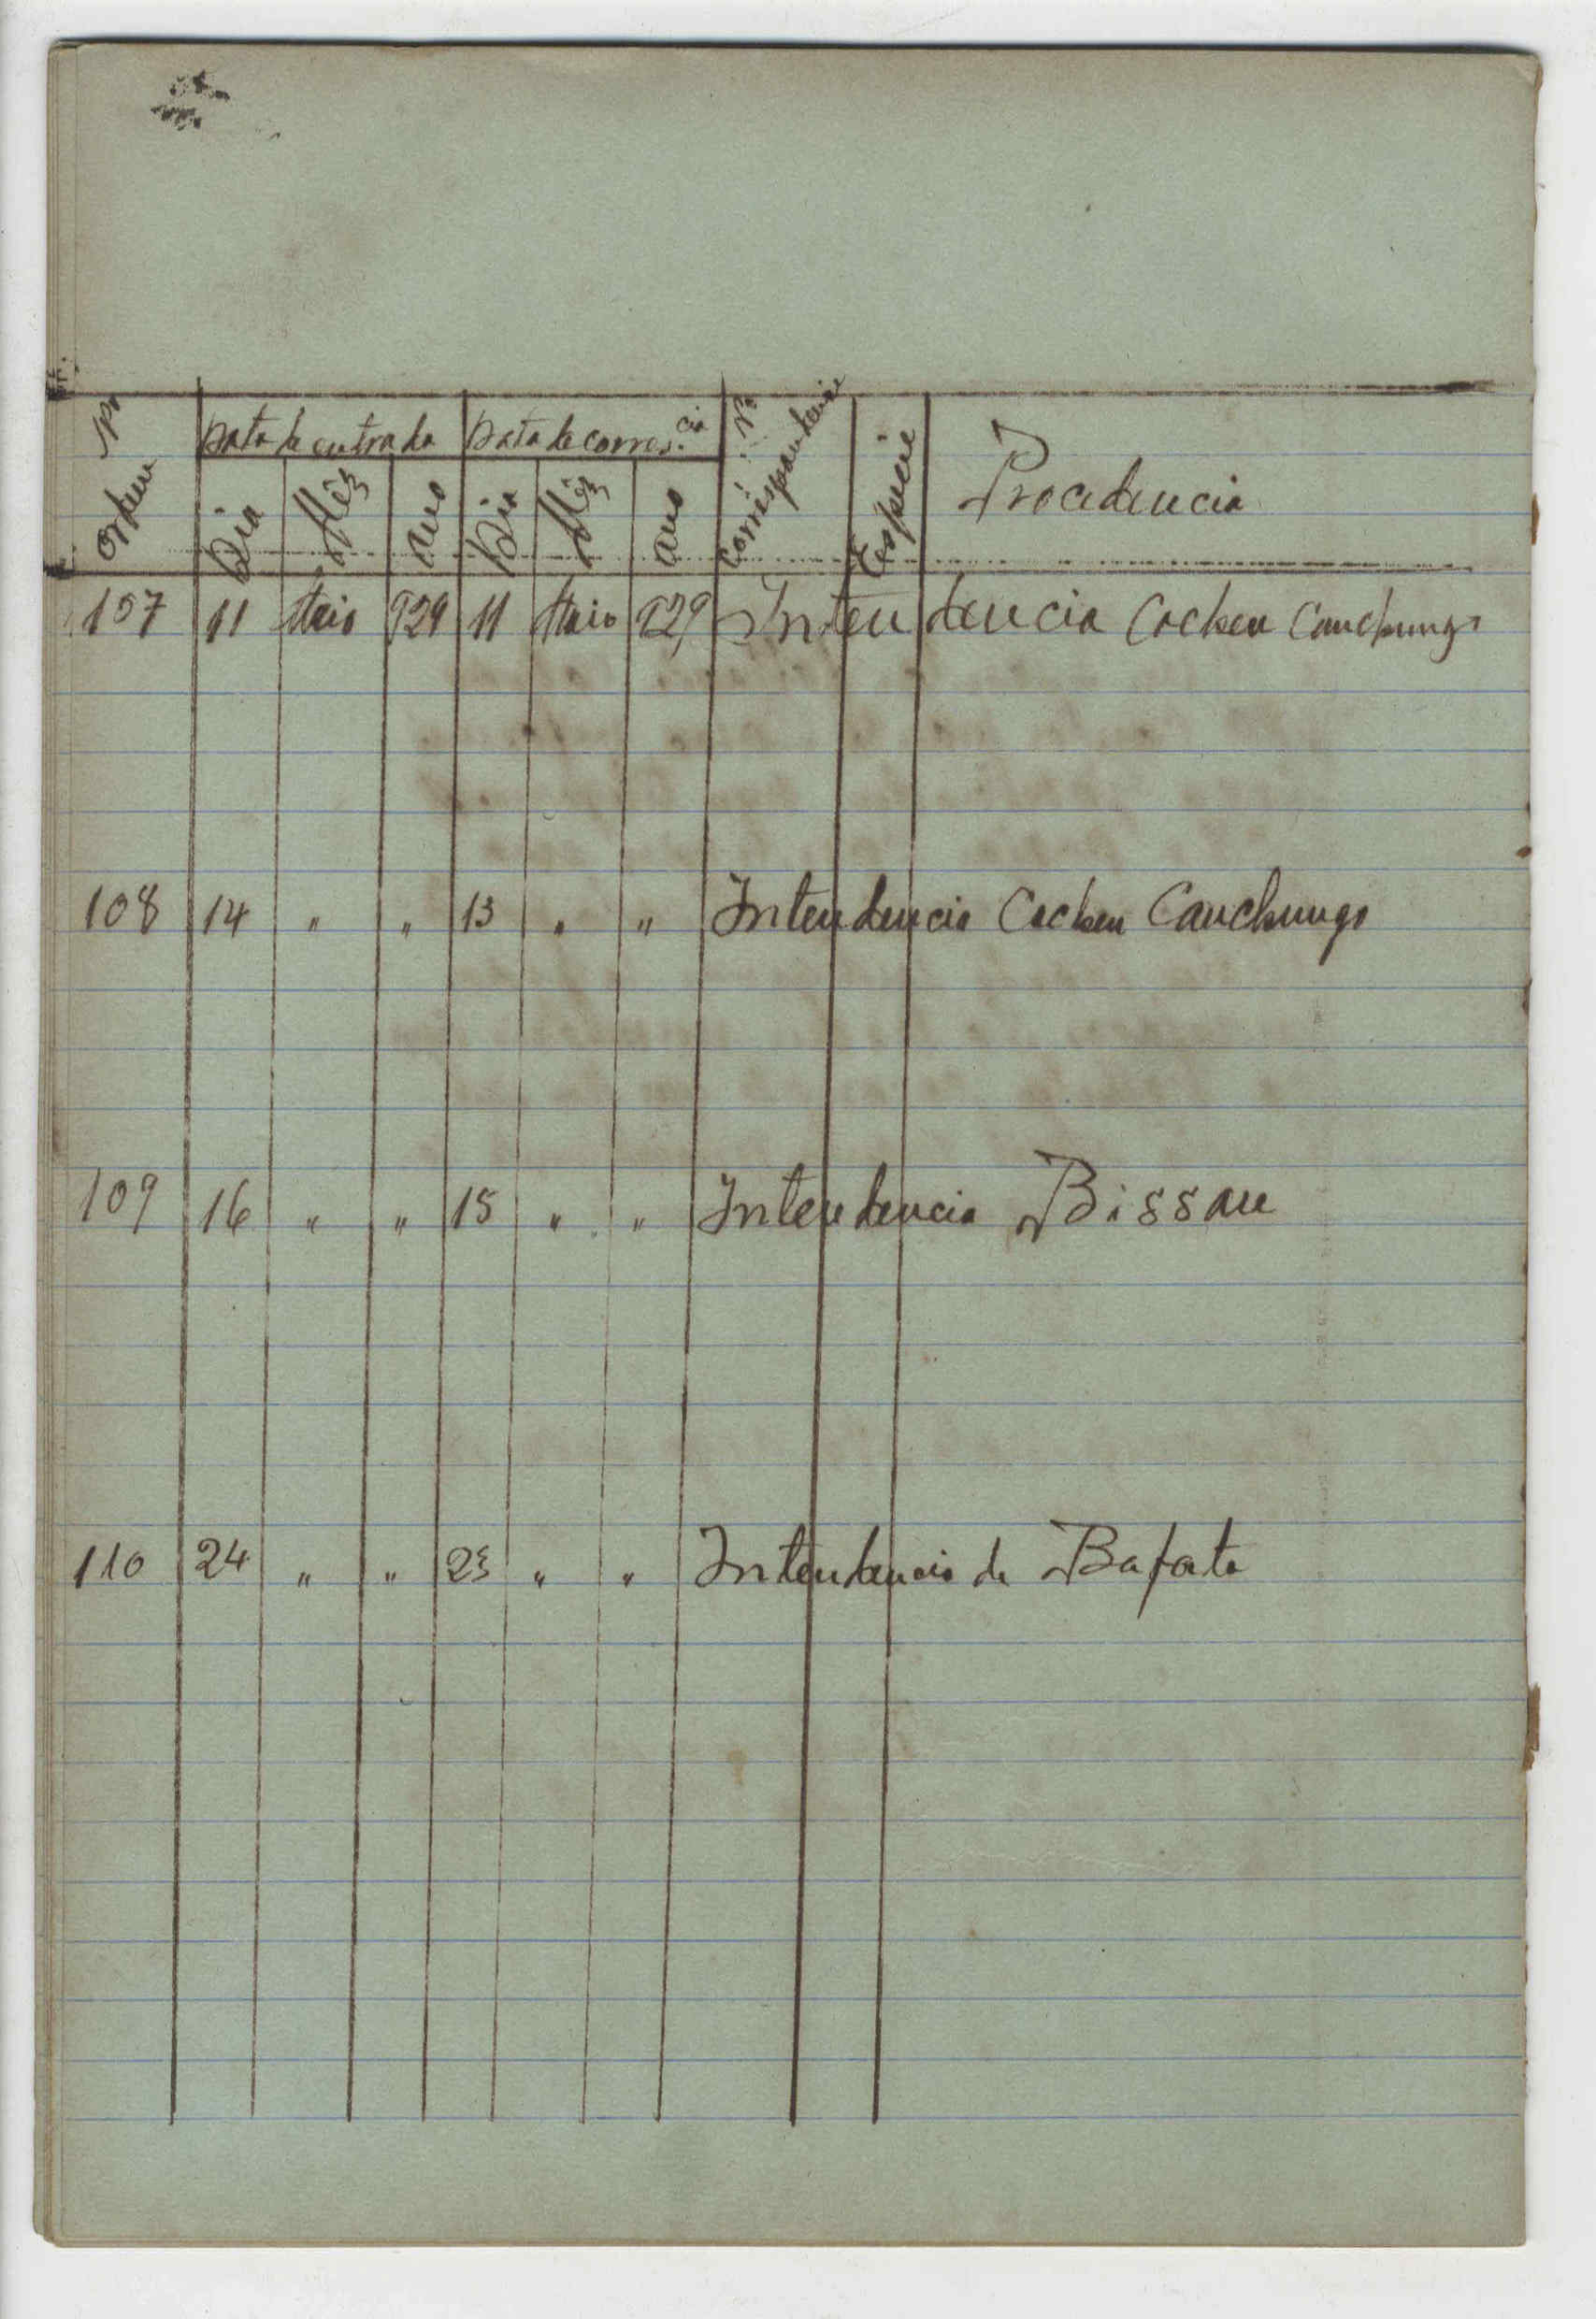 Nº Ordem Data de entrada Data de corres.cia Nº Correspondencia Especie Procedencia
Dia Mêz Ano Dia Mêz Ano
107 11 Maio 929 11 Maio 929 Intendencia Cacheu Canchungo
108 14 " " 13 " " Intendencia Cacheu Canchungo
109 16 " " 15 " " Intendencia Bissau
110 24 " " 23 " " Intendencia de Bafata